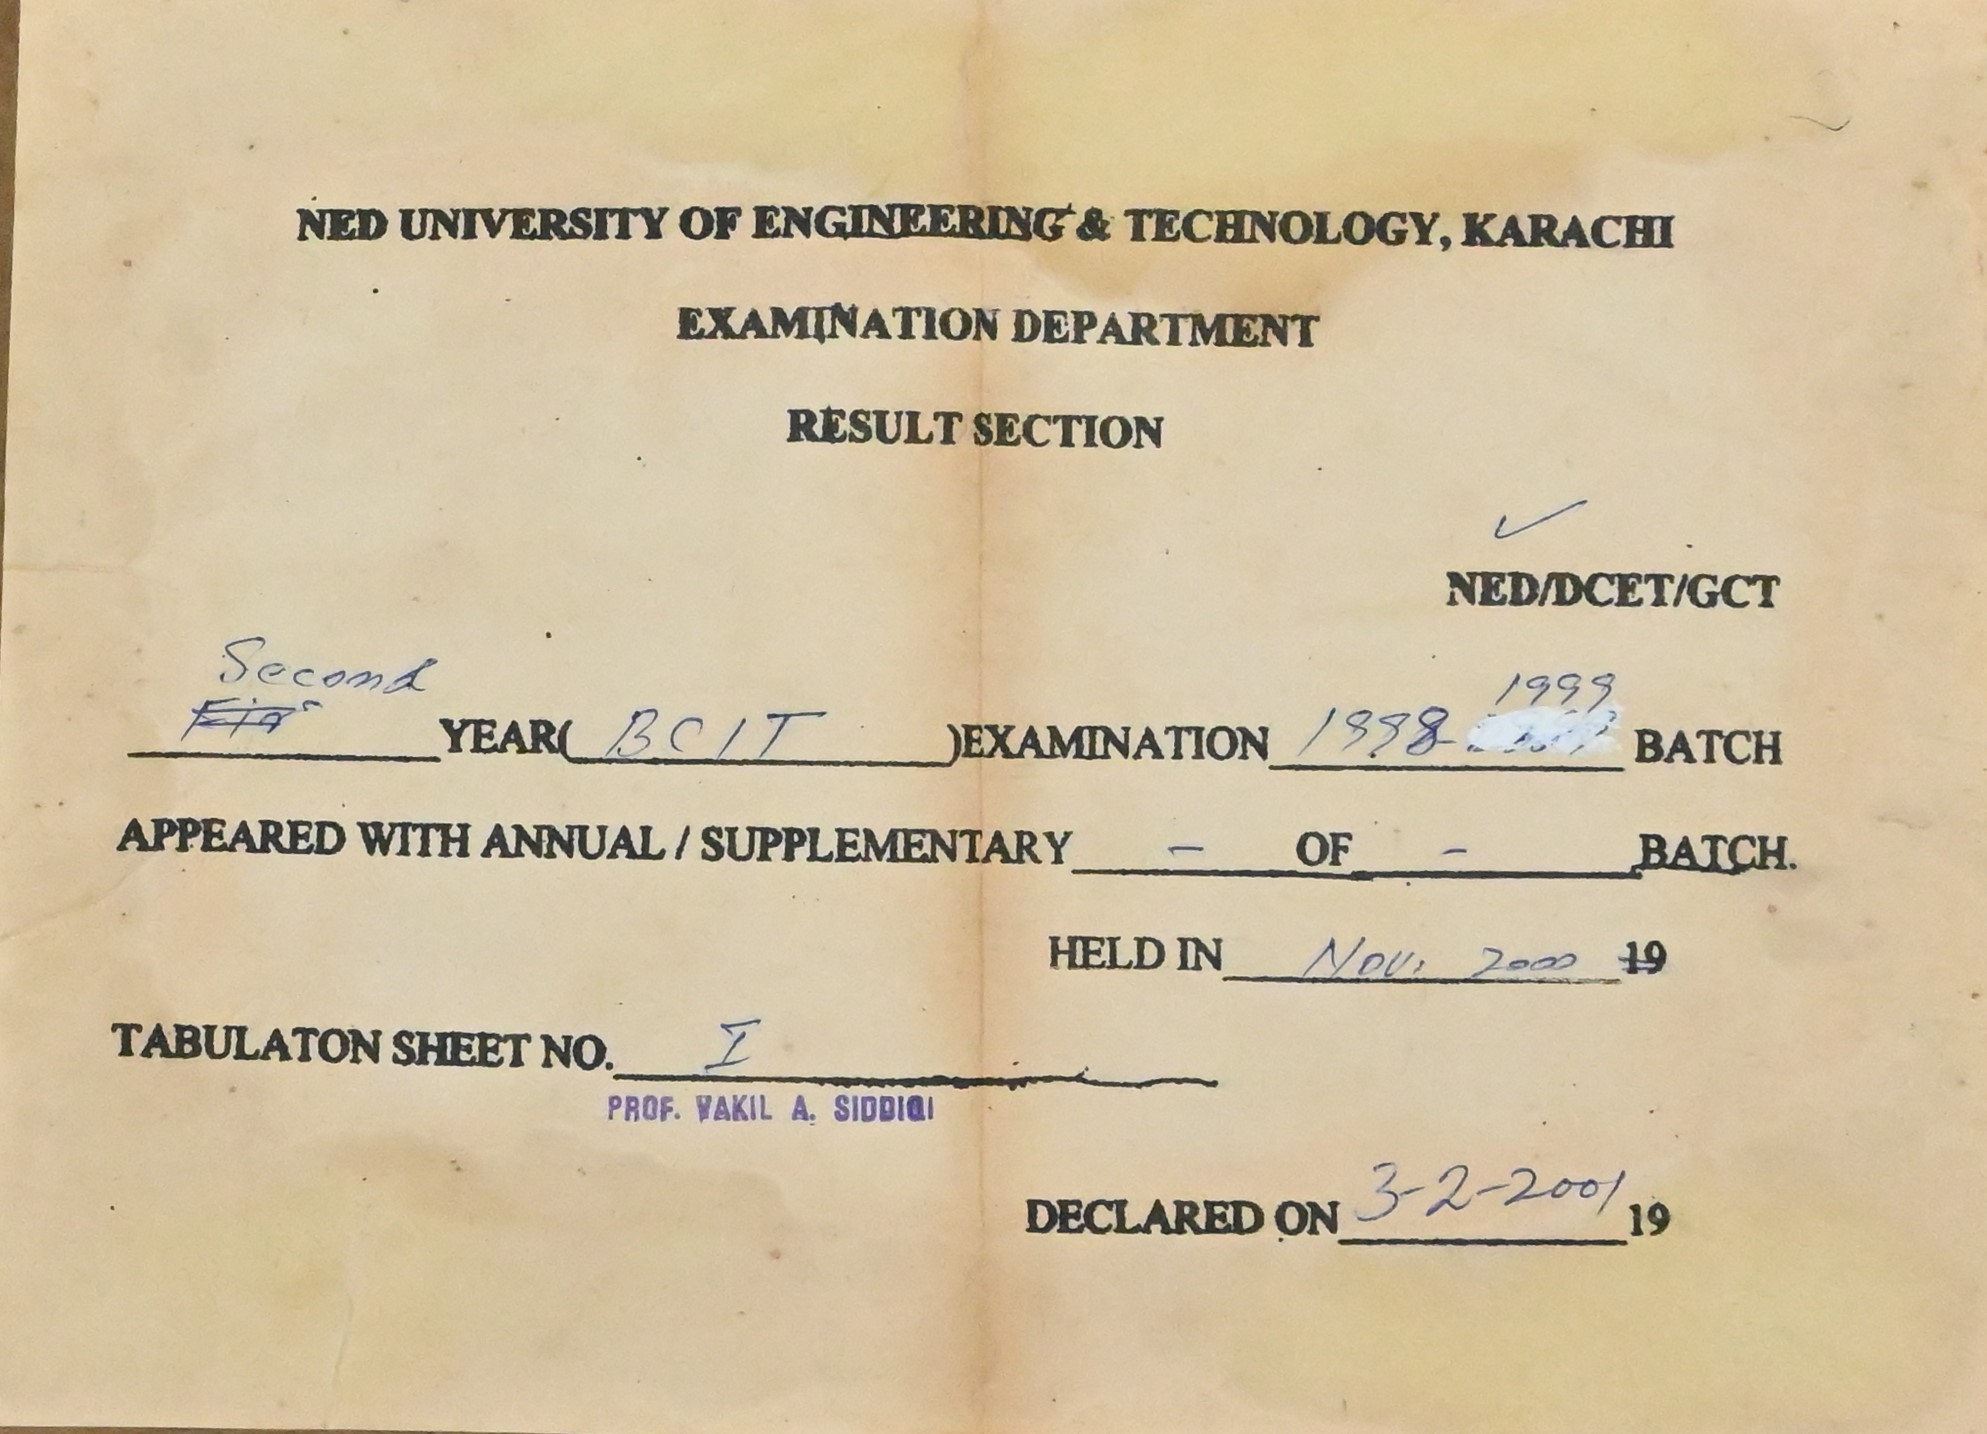 NED UNIVERSITY OF ENGINEERING & TECHNOLOGY, KARACHI
EXAMINATION DEPARTMENT
RESULT SECTION
NED/DCET/GCT
Second
YEAR( BCIT )EXAMINATION 1998- 1999 BATCH
APPEARED WITH ANNUAL / SUPPLEMENTARY - OF - BATCH.
HELD IN Nov. 2000 19
TABULATON SHEET NO. I
PROF. VAKIL A. SIDDIQI
DECLARED ON 3-2-2001 19